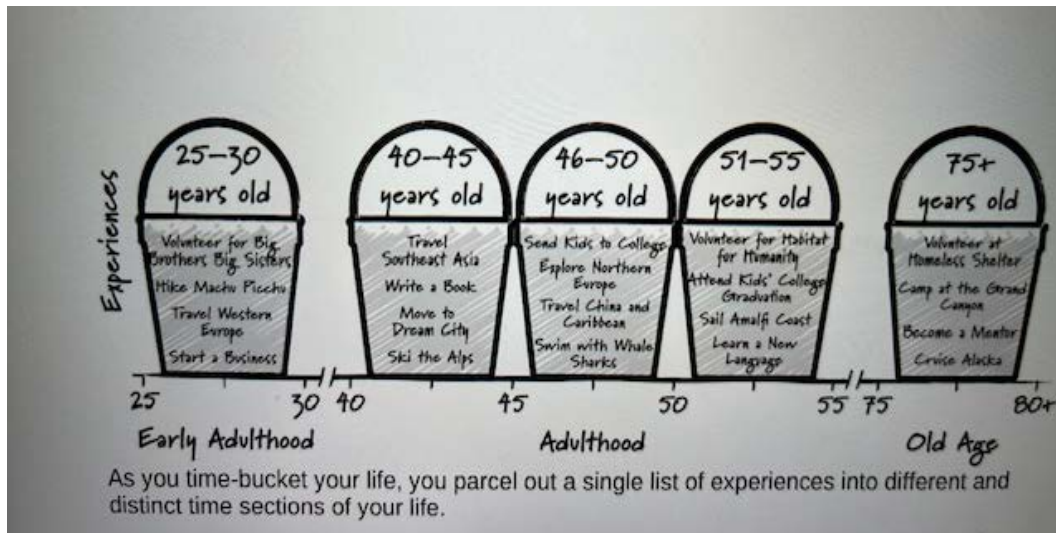 Experiences
25–30
years old
Volunteer for Big
Brothers Big Sisters
Hike Machu Picchu
Travel Western
Europe
Start a Business
40–45
years old
Travel
Southeast Asia
Write a Book
Move to
Dream City
Ski the Alps
46–50
years old
Send Kids to College
Explore Northern
Europe
Travel China and
Caribbean
Swim with Whale
Sharks
51–55
years old
Volunteer for Habitat
for Humanity
Attend Kids' College
Graduation
Sail Amalfi Coast
Learn a New
Language
75+
years old
Volunteer at
Homeless Shelter
Camp at the Grand
Canyon
Become a Mentor
Cruise Alaska
25 30 40 45 50 55 75 80+
Early Adulthood Adulthood Old Age
As you time-bucket your life, you parcel out a single list of experiences into different and
distinct time sections of your life.